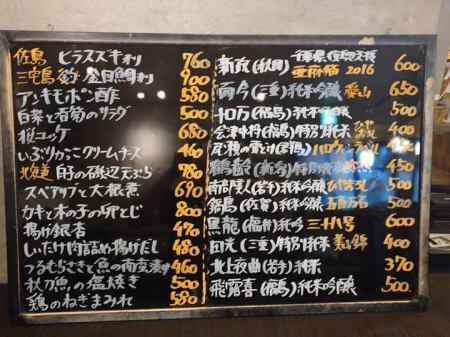 佐島 ヒラスズキ刺 760
三宅島 釣金目鯛刺 900
アンキモポン酢 580
白菜と春菊のサラダ 500
桜ユッケ 680
いぶりがっこクリームチーズ 460
北海道 白子の磯辺天ぷら 780
スペアリブと大根煮 690
カキと木の子の卵とじ 800
揚げ銀杏 470
しいたけ肉詰め揚げだし 480
つるむらさきと魚の南蛮漬け 460
秋刀魚の塩焼き 500
鶏のねぎまみれ 580
新政(秋田) 亜麻猫 2016 600
而今(三重)純米吟醸 愛山 650
十ロ万(福島)純米吟醸 500
会津中将(福島)特別純米 400
ハロウィンラベル 450
鶴齢(新潟)特別純米 450
南部美人(岩手)純米吟醸 500
鍋島(佐賀)純米吟醸 五百万石 500
黒龍(福井)純吟 三十八号 600
田光(三重)特別純米 美山錦 400
北上夜曲(岩手)純米 370
飛露喜(福島)純米吟醸 500